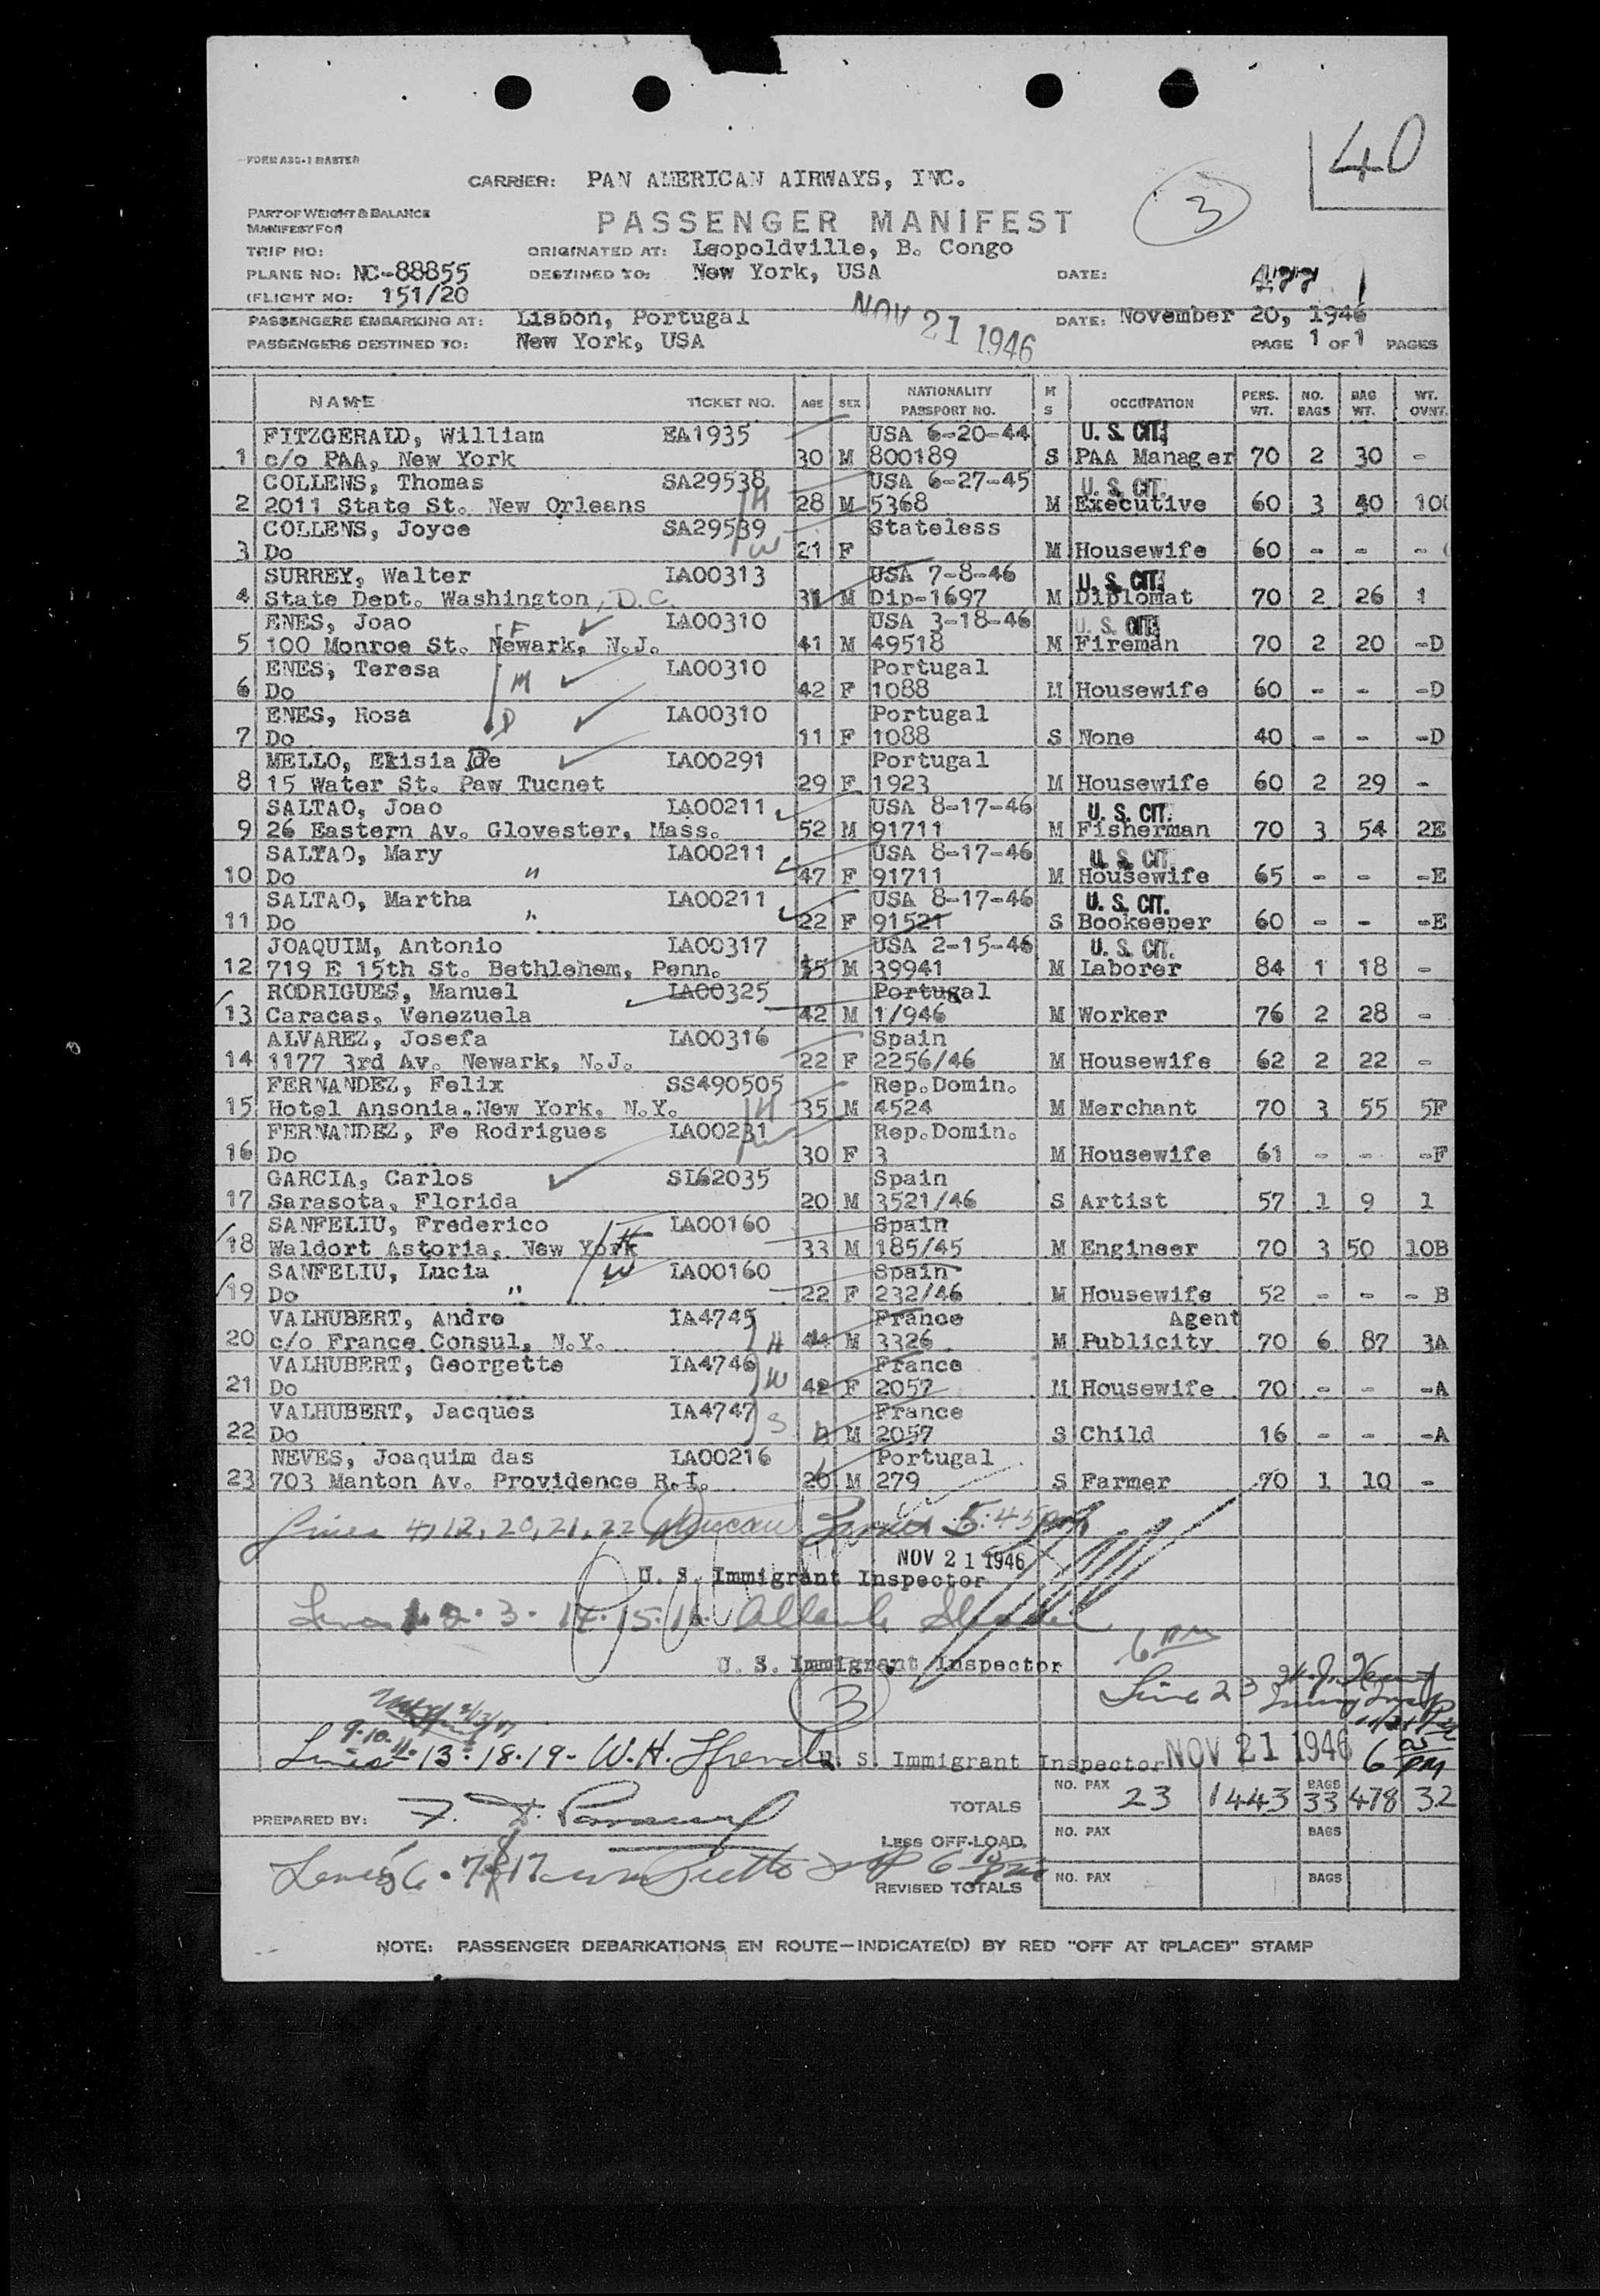 40
FORM ASG-1 MASTER
CARRIER: PAN AMERICAN AIRWAYS, INC.
3
PART OF WEIGHT & BALANCE
MANIFEST FOR
PASSENGER MANIFEST
TRIP NO:
ORIGINATED AT: Leopoldville, B. Congo
PLANE NO: NC-88855 DESTINED TO: New York, USA DATE:
(FLIGHT NO: 151/20
PASSENGERS EMBARKING AT: Lisbon, Portugal NOV 21 1946 DATE: November 20, 1946
PASSENGERS DESTINED TO: New York, USA PAGE 1 OF 1 PAGES
NAME TICKET NO. AGE SEX NATIONALITY PASSPORT NO. M S OCCUPATION PERS. WT. NO. BAGS BAG WT. WT. OVNT.
FITZGERALD, William EA1935 USA 6-20-44 U. S. CIT.
1 c/o PAA, New York 30 M 800189 S PAA Manager 70 2 30 -
COLLENS, Thomas SA29538 USA 6-27-45 U. S. CIT.
2 2011 State St. New Orleans H 28 M 5368 M Executive 60 3 40 10
COLLENS, Joyce SA29539 Stateless
3 Do W 21 F M Housewife 60 - - -
SURREY, Walter LA00313 USA 7-8-46 U. S. CIT.
4 State Dept. Washington, D.C. 31 M Dip-1697 M Diplomat 70 2 26 1
ENES, Joao F LA00310 USA 3-18-46 U. S. CIT.
5 100 Monroe St. Newark, N.J. 41 M 49518 M Fireman 70 2 20 -D
ENES, Teresa M LA00310 Portugal
6 Do 42 F 1088 M Housewife 60 - - -D
ENES, Rosa D LA00310 Portugal
7 Do 11 F 1088 S None 40 - - -D
MELLO, Elisia de LA00291 Portugal
8 15 Water St. Paw Tucnet 29 F 1923 M Housewife 60 2 29 -
SALTAO, Joao LA00211 USA 8-17-46 U. S. CIT.
9 26 Eastern Av. Glovester, Mass. 52 M 91711 M Fisherman 70 3 54 2E
SALTAO, Mary LA00211 USA 8-17-46 U. S. CIT.
10 Do " 47 F 91711 M Housewife 65 - - -E
SALTAO, Martha LA00211 USA 8-17-46 U. S. CIT.
11 Do " 22 F 91521 S Bookeeper 60 - - -E
JOAQUIM, Antonio LA00317 USA 2-15-46 U. S. CIT.
12 719 E 15th St. Bethlehem, Penn. 55 M 39941 M Laborer 84 1 18 -
RODRIGUES, Manuel LA00325 Portugal
13 Caracas, Venezuela 42 M 1/946 M Worker 76 2 28 -
ALVAREZ, Josefa LA00316 Spain
14 1177 3rd Av. Newark, N.J. 22 F 2256/46 M Housewife 62 2 22 -
FERNANDEZ, Felix SS490505 Rep.Domin.
15 Hotel Ansonia,New York, N.Y. H 35 M 4524 M Merchant 70 3 55 5F
FERNANDEZ, Fe Rodrigues LA00231 Rep.Domin.
16 Do W 30 F 3 M Housewife 61 - - -F
GARCIA, Carlos SL62035 Spain
17 Sarasota, Florida 20 M 3521/46 S Artist 57 1 9 1
SANFELIU, Frederico LA00160 Spain
18 Waldort Astoria, New York H 33 M 185/45 M Engineer 70 3 50 10B
SANFELIU, Lucia W LA00160 Spain
19 Do " 22 F 232/46 M Housewife 52 - - - B
VALHUBERT, Andre IA4745 France Agent
20 c/o France Consul, N.Y. H 44 M 3326 M Publicity 70 6 87 3A
VALHUBERT, Georgette IA4746 France
21 Do W 42 F 2057 M Housewife 70 - - -A
VALHUBERT, Jacques IA4747 S France
22 Do M 2057 S Child 16 - - -A
NEVES, Joaquim das LA00216 Portugal
23 703 Manton Av. Providence R.I. 20 M 279 S Farmer 70 1 10 -
Lines 4, 12, 20, 21, 22 5:45 pm
NOV 21 1946
U. S. Immigrant Inspector
Lines 1. 2. 3. 14. 15. 16.
U. S. Immigrant Inspector 6 PM
3 Line 23
9.10.11.
Lines 13. 18. 19- W. H. U. S. Immigrant Inspector NOV 21 1946 6 05 PM
TOTALS NO. PAX 23 1443 BAGS 33 478 32
PREPARED BY: F.
LESS OFF-LOAD. NO. PAX BAGS
Lines 6. 7. 17 6 10 pm
REVISED TOTALS NO. PAX BAGS
NOTE: PASSENGER DEBARKATIONS EN ROUTE—INDICATE(D) BY RED "OFF AT (PLACE)" STAMP